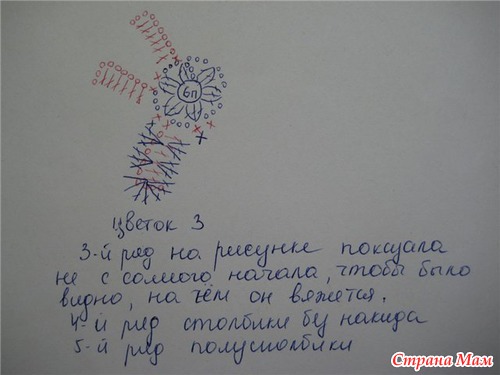 6п
Цветок 3
3-й ряд на рисунке показала
не с самого начала, чтобы было
видно, на чём он вяжется.
4-й ряд столбики бу накида
5-й ряд полустолбики
Страна Мам